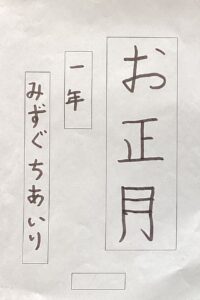 お正月
一年
みずぐちあいり